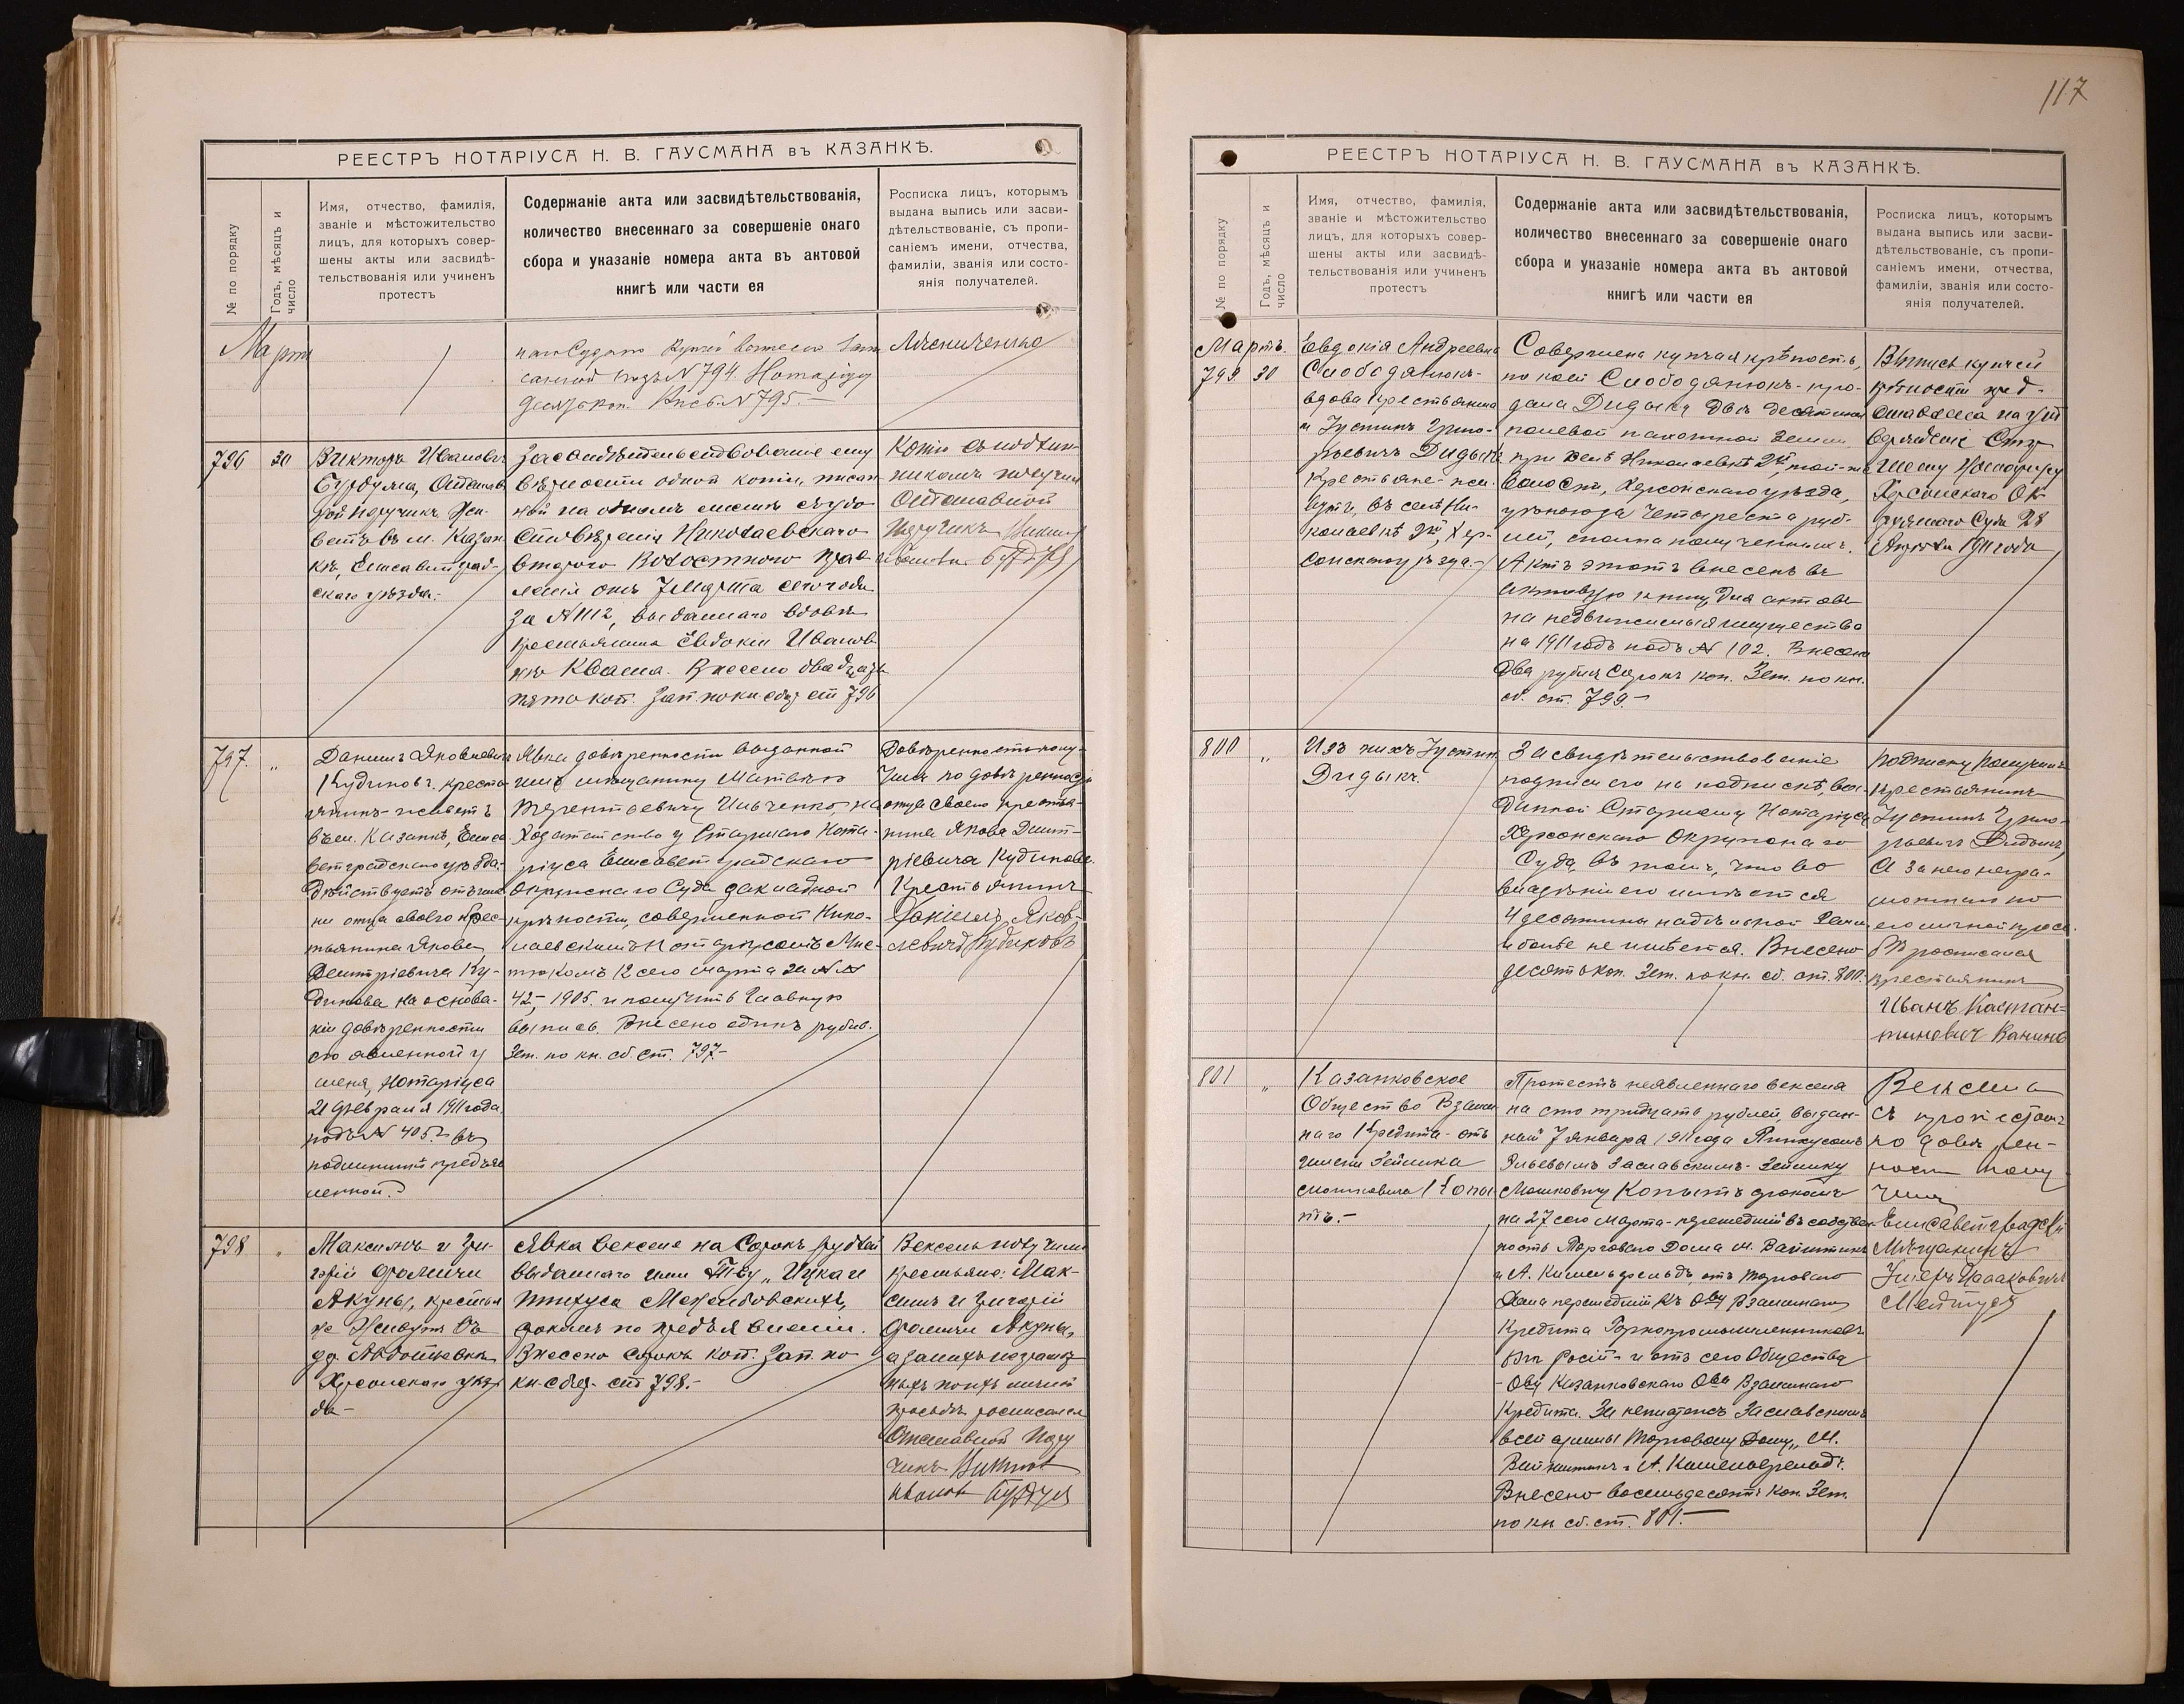 РЕЕСТРЪ НОТАРІУСА Н. В. ГАУСМАНА въ КАЗАНКѢ.
№ по порядку
Годъ, мѣсяцъ и число
Имя, отчество, фамилія,
званіе и мѣстожительство
лицъ, для которыхъ совер-
шены акты или засвидѣ-
тельствованія или учиненъ
протестъ
Содержаніе акта или засвидѣтельствованія,
количество внесеннаго за совершеніе онаго
сбора и указаніе номера акта въ актовой
книгѣ или части ея
Росписка лицъ, которымъ
выдана выпись или засви-
дѣтельствованіе, съ пропи-
саніемъ имени, отчества,
фамиліи, званія или состо-
янія получателей.
Мартъ
подъ N 794. Нотаріусу
N 795.—
796
30
Викторъ Ивановъ
Отстав
ной поручикъ жи-
ветъ въ м. Казан
кѣ, Елисаветград-
скаго уѣзда.
Засвидѣтельствованіе ему
вѣрности одной копіи, писан
ной на одномъ листѣ съ удо
стовѣренія Николаевскаго
второго Волостного прав
ленія отъ 7 Марта сего года
за N 1112, выданнаго вдовѣ
крестьянина Евдокіи Иванов
нѣ Квасша. Внесено двадцать
пять коп. Зап. по кн. сбор. ст 796
Копію съ подлин
никомъ получилъ
Отставной
Поручикъ
797.
"
Даніилъ Яковлевичъ
Кудиновъ, кресть
янинъ живетъ
въ м. Казанкѣ, Елиса
ветградскаго уѣзда.
Дѣйствуетъ отъ име
ни отца своего крес-
тьянина Якова
Дмитріевича Ку-
динова на основа-
ніи довѣренности
его явленной у
меня, Нотаріуса
21 февраля 1911 года
подъ N 405 въ
подлинникѣ предъяв
ленной.
Явка довѣренности выданной
имъ мѣщанину Матвѣю
Терентьевичу Ильченко, на
ходатайство у Старшаго Нота-
ріуса Елисаветградскаго
Окружнаго Суда закладной
крѣпости, совершенной Нико-
лаевскимъ Нотаріусомъ Мис-
тюкомъ 12 сего марта за N N
42, 1905. и получить Главную
выпись. Внесено одинъ рубль.
Зап. по кн. сб. ст. 797.-
Довѣренность полу-
чилъ по довѣренности
отца своего крестья-
нина Якова Дмит-
ріевича Кудинова.
Крестьянинъ
Даніилъ Яков-
левичъ Кудиновъ
798
"
Максимъ и Гри-
горій Фомичи
Акуны, крестья
не живутъ въ
дер. Авдотьевкѣ
Херсонскаго уѣз
да-
Явка векселя на Сорокъ рублей
выданнаго ими Т-ву „Ицка и
Пинхуса Межебовскихъ,
срокомъ по предъявленіи.
Внесено сорокъ коп. Зап. по
кн. сбор. ст 798.-
Вексель получили
крестьяне: Мак-
симъ и Григорій
Фомичи Акуны,
а за нихъ неграмот
ныхъ по ихъ личной
просьбѣ росписался
Отставной Пору
чикъ Викторъ
117
РЕЕСТРЪ НОТАРІУСА Н. В. ГАУСМАНА въ КАЗАНКѢ.
№ по порядку
Годъ, мѣсяцъ и число
Имя, отчество, фамилія,
званіе и мѣстожительство
лицъ, для которыхъ совер-
шены акты или засвидѣ-
тельствованія или учиненъ
протестъ
Содержаніе акта или засвидѣтельствованія,
количество внесеннаго за совершеніе онаго
сбора и указаніе номера акта въ актовой
книгѣ или части ея
Росписка лицъ, которымъ
выдана выпись или засви-
дѣтельствованіе, съ пропи-
саніемъ имени, отчества,
фамиліи, званія или состо-
янія получателей.
Мартъ.
799
30
Евдокія Андреевна
Слободянюкъ-
вдова крестьянина
и Іустинъ Григо-
рьевичъ Дидыкъ
крестьяне-жи-
вутъ въ селѣ Ни-
колаевкѣ 2й, Хер-
сонскаго уѣзда.-
Совершена купчая крѣпость,
по коей Слободянюкъ-про-
дала Дидыку двѣ десятины
полевой пахотной земли
при селѣ Николаевкѣ 2й, той-же
волости, Херсонскаго уѣзда,
цѣною за четыреста руб-
лей, сполна полученныхъ.
Актъ этотъ внесенъ въ
актовую книгу для актовъ
на недвижимыя имущества
на 1911 годъ подъ N 102. Внесено
Два рубля сорокъ коп. Зап. по кн.
сб. ст. 799.-
Выпись купчей
крѣпости пред-
ставлена на ут
вержденіе Стар
шему Нотаріусу
Херсонскаго Ок
ружнаго Суда 28
Апрѣля 1911 года
800
"
Изъ нихъ Іустинъ
Дидыкъ.
Засвидѣтельствованіе
подписи его на подпискѣ, вы-
данной Старшему Нотаріусу
Херсонскаго Окружнаго
Суда, въ томъ, что во
владѣніи его имѣется
4 десятины надѣльной земли
и болѣе не имѣется. Внесено
десять коп. Зап. по кн. сб. ст. 800.
Подписку получилъ
крестьянинъ
Іустинъ Григо-
рьевичъ Дидыкъ,
А за него негра-
мотнаго по
его личной прось
бѣ росписался
крестьянинъ
Иванъ Констан-
тиновичъ Ванинъ
801
"
Казанковское
Общество Взаим
наго Кредита-отъ
имени Зейлика
Мошковича Копы
тъ.-
Протестъ неявленнаго векселя
на сто тридцать рублей, выдан-
ный 7 января 1911 года Пинхусомъ
Эльевымъ Заславскимъ-Зейлику
Мошковичу Копытъ срокомъ
на 27 сего марта-перешедшій въ собствен-
ность Торговаго Дома М. Вайнштейнъ
и А. Кисельгофъ, отъ Торговаго
Дома перешедшій къ Об-ву Взаимнаго
Кредита Горнопромышленниковъ
Юга Россіи-и отъ сего Общества
-Об-ву Казанковскаго Об-ва Взаимнаго
Кредита. За неплатежъ Заславскимъ
всей суммы Торговому Дому „М.
Внесено восемьдесятъ коп. Зап.
по кн сб. ст. 801.-
Векселя
съ протестомъ
по довѣрен-
ности полу
чилъ
Елисаветградскій
Мѣщанинъ